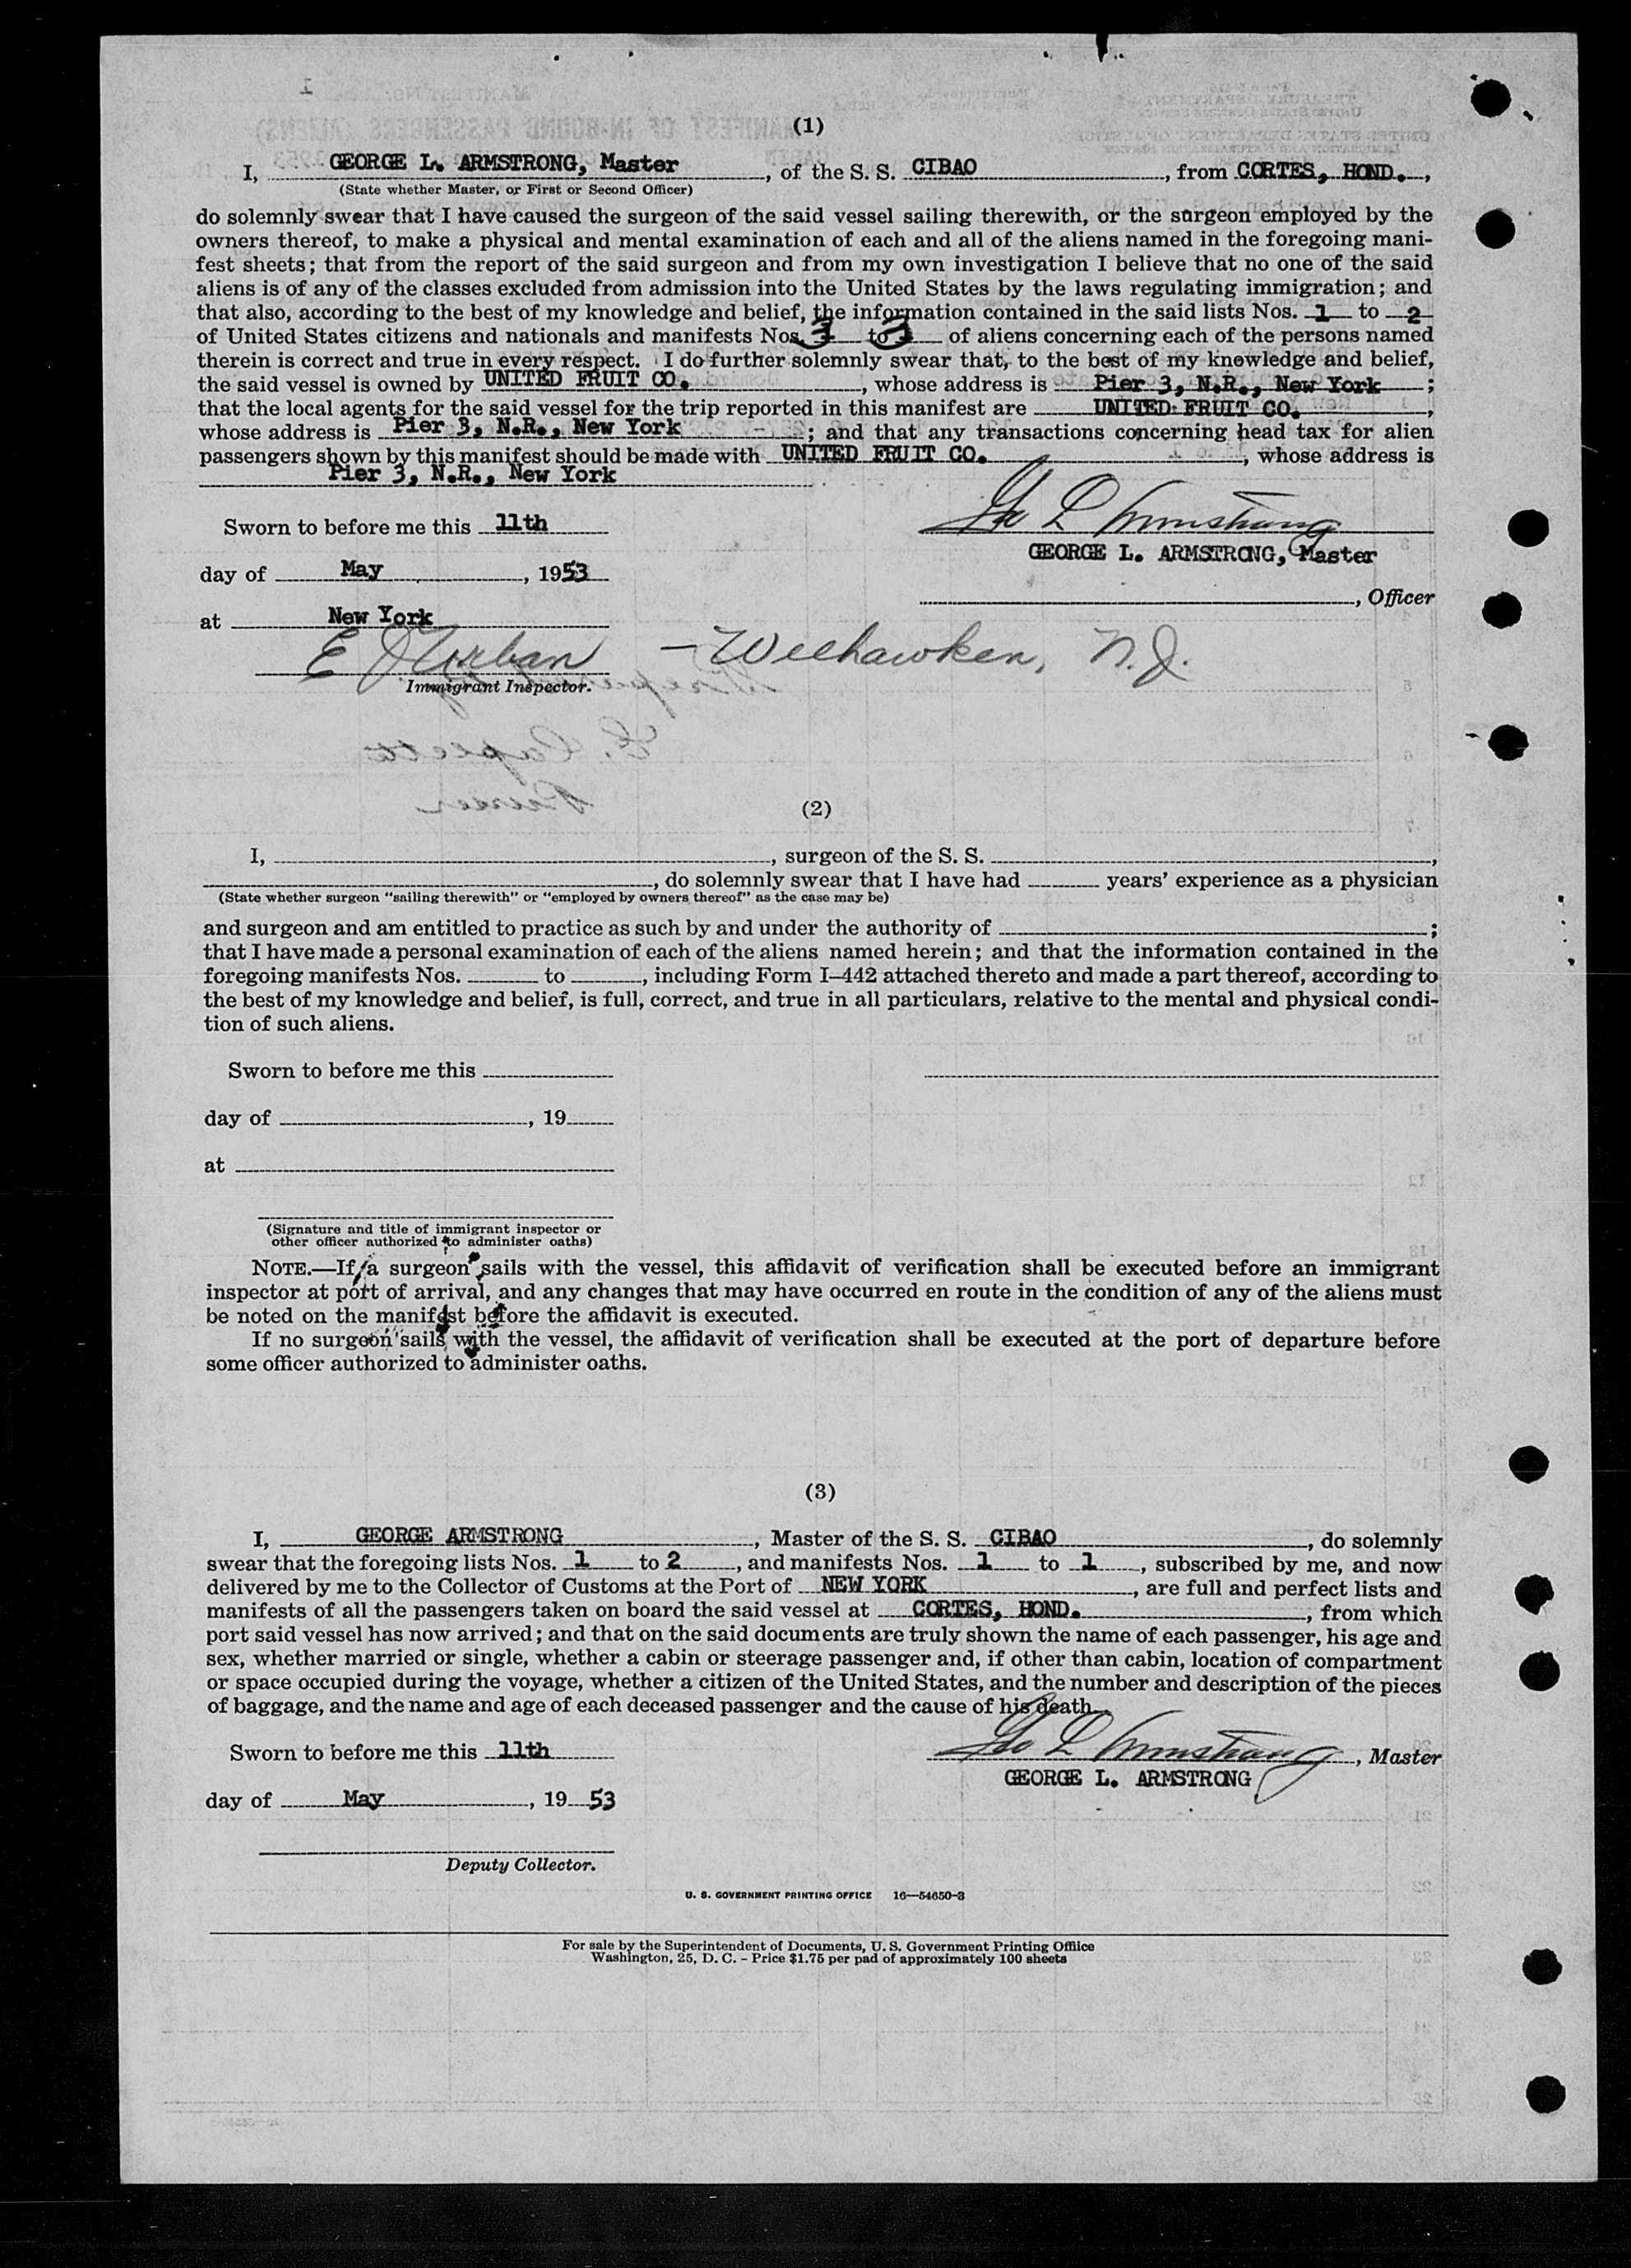 (1)
I, GEORGE L. ARMSTRONG, Master, of the S. S. CIBAO, from CORTES, HOND.,
(State whether Master, or First or Second Officer)
do solemnly swear that I have caused the surgeon of the said vessel sailing therewith, or the surgeon employed by the
owners thereof, to make a physical and mental examination of each and all of the aliens named in the foregoing mani-
fest sheets; that from the report of the said surgeon and from my own investigation I believe that no one of the said
aliens is of any of the classes excluded from admission into the United States by the laws regulating immigration; and
that also, according to the best of my knowledge and belief, the information contained in the said lists Nos. 1 to 2
of United States citizens and nationals and manifests Nos. 3 to 3 of aliens concerning each of the persons named
therein is correct and true in every respect. I do further solemnly swear that, to the best of my knowledge and belief,
the said vessel is owned by UNITED FRUIT CO., whose address is Pier 3, N.R., New York;
that the local agents for the said vessel for the trip reported in this manifest are UNITED FRUIT CO.,
whose address is Pier 3, N.R., New York; and that any transactions concerning head tax for alien
passengers shown by this manifest should be made with UNITED FRUIT CO., whose address is
Pier 3, N.R., New York
Geo L Armstrong
Sworn to before me this 11th
GEORGE L. ARMSTRONG, Master
day of May, 1953
, Officer
at New York
E J Urban - Weehawken, N.J.
Immigrant Inspector.
(2)
I, , surgeon of the S. S. ,
, do solemnly swear that I have had years' experience as a physician
(State whether surgeon "sailing therewith" or "employed by owners thereof" as the case may be)
and surgeon and am entitled to practice as such by and under the authority of ;
that I have made a personal examination of each of the aliens named herein; and that the information contained in the
foregoing manifests Nos. to , including Form I-442 attached thereto and made a part thereof, according to
the best of my knowledge and belief, is full, correct, and true in all particulars, relative to the mental and physical condi-
tion of such aliens.
Sworn to before me this
day of , 19
at
(Signature and title of immigrant inspector or
other officer authorized to administer oaths)
NOTE.—If a surgeon sails with the vessel, this affidavit of verification shall be executed before an immigrant
inspector at port of arrival, and any changes that may have occurred en route in the condition of any of the aliens must
be noted on the manifest before the affidavit is executed.
If no surgeon sails with the vessel, the affidavit of verification shall be executed at the port of departure before
some officer authorized to administer oaths.
(3)
I, GEORGE ARMSTRONG, Master of the S. S. CIBAO, do solemnly
swear that the foregoing lists Nos. 1 to 2, and manifests Nos. 1 to 1, subscribed by me, and now
delivered by me to the Collector of Customs at the Port of NEW YORK, are full and perfect lists and
manifests of all the passengers taken on board the said vessel at CORTES, HOND., from which
port said vessel has now arrived; and that on the said documents are truly shown the name of each passenger, his age and
sex, whether married or single, whether a cabin or steerage passenger and, if other than cabin, location of compartment
or space occupied during the voyage, whether a citizen of the United States, and the number and description of the pieces
of baggage, and the name and age of each deceased passenger and the cause of his death.
Sworn to before me this 11th
Geo L Armstrong, Master
GEORGE L. ARMSTRONG
day of May, 19 53
Deputy Collector.
U. S. GOVERNMENT PRINTING OFFICE 16—54650-3
For sale by the Superintendent of Documents, U. S. Government Printing Office
Washington, 25, D. C. - Price $1.75 per pad of approximately 100 sheets